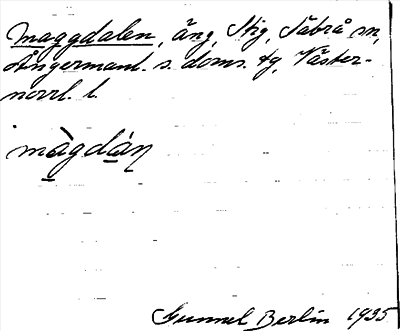 Maggdalen, äng, Stig, Säbrå sn,
Ångermanl. s. doms. tg, Väster-
norrl. l.
màgdáņ
Gunnel Berlin 1935